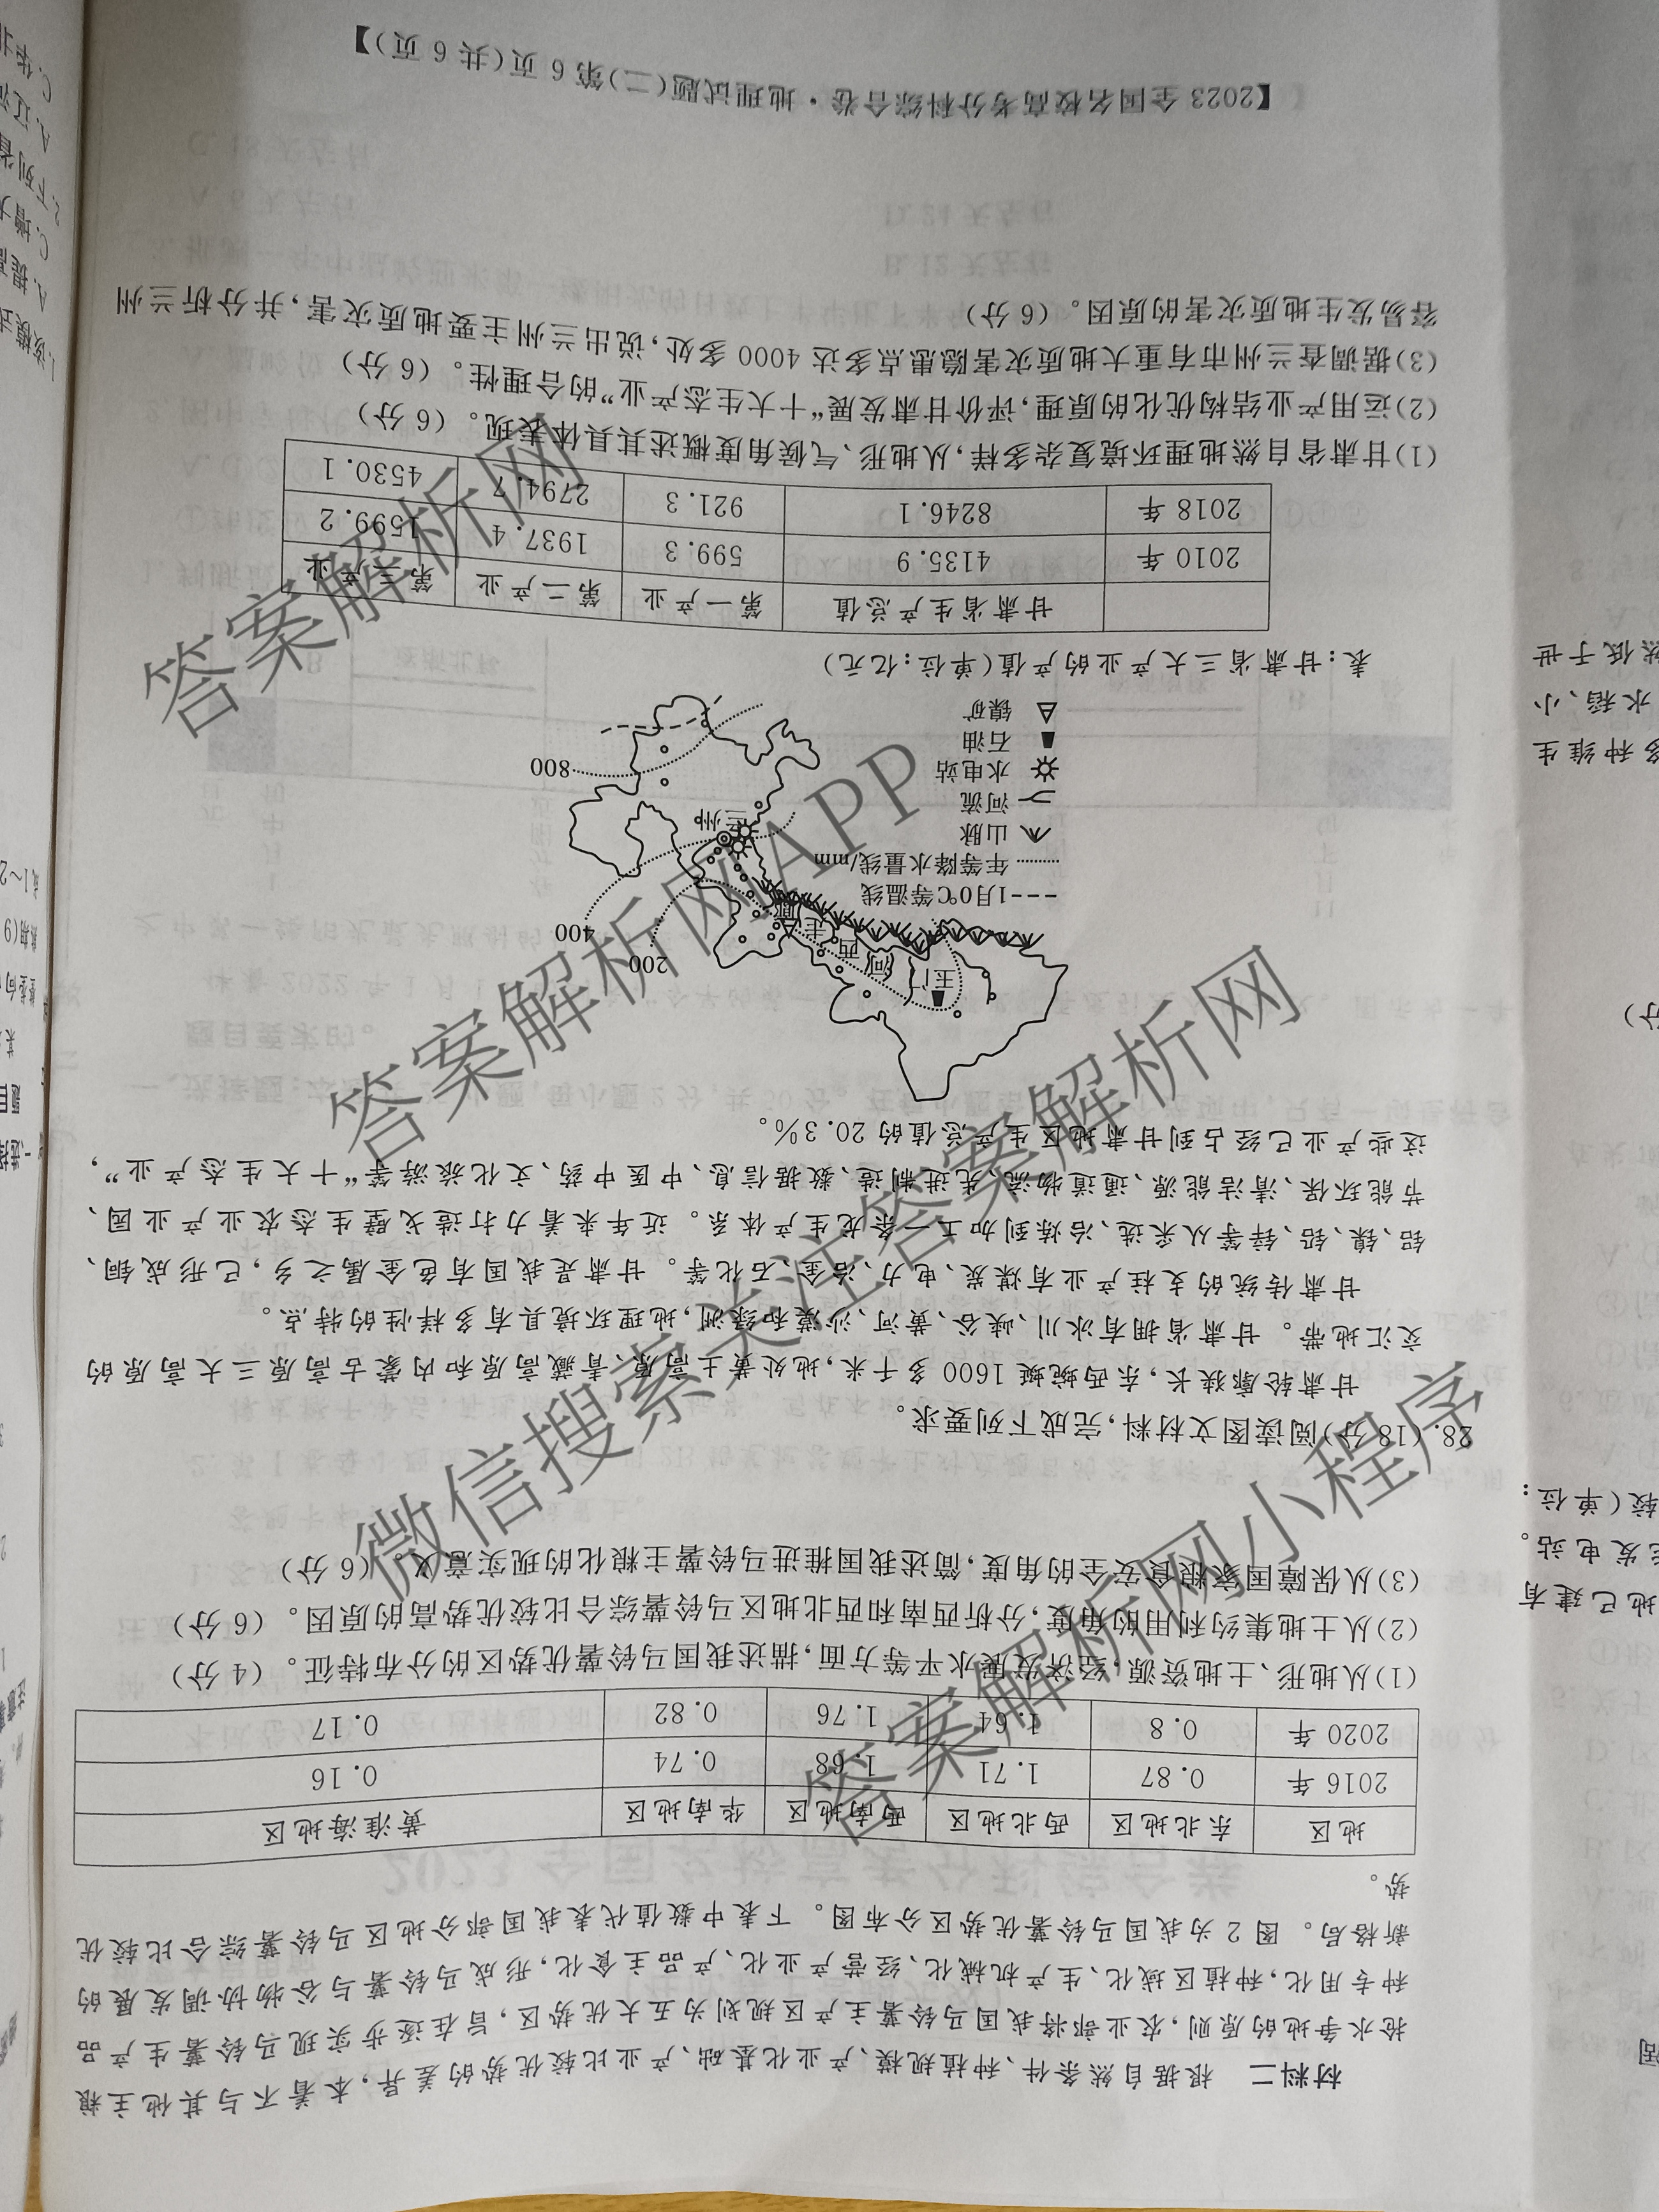 材料二 根据自然条件、种植规模、产业化基础、产业比较优势的差异,本着不与其他主粮
抢水争地的原则,农业部将我国马铃薯主产区规划为五大优势区,旨在逐步实现马铃薯生产品
种专用化,种植区域化、生产机械化、经营产业化、产品主食化,形成马铃薯与谷物协调发展的
新格局。图2为我国马铃薯优势区分布图。下表中数值代表我国部分地区马铃薯综合比较优
势。
地区 东北地区 西北地区 西南地区 华南地区 黄淮海地区
2016年 0.87 1.71 1.68 0.74 0.16
2020年 0.8 1.64 1.76 0.82 0.17
(1)从地形、土地资源、经济发展水平等方面,描述我国马铃薯优势区的分布特征。(4分)
(2)从土地集约利用的角度,分析西南和西北地区马铃薯综合比较优势高的原因。(6分)
(3)从保障国家粮食安全的角度,简述我国推进马铃薯主粮化的现实意义。(6分)
28.(18分)阅读图文材料,完成下列要求。
甘肃轮廓狭长,东西蜿蜒1600多千米,地处黄土高原、青藏高原和内蒙古高原三大高原的
交汇地带。甘肃省拥有冰川、峡谷、黄河、沙漠和绿洲,地理环境具有多样性的特点。
甘肃传统的支柱产业有煤炭、电力、冶金、石化等。甘肃是我国有色金属之乡,已形成铜、
铝、镍、铅、锌等从采选、冶炼到加工一条龙生产体系。近年来着力打造戈壁生态农业产业园、
节能环保、清洁能源、通道物流、先进制造、数据信息、中医中药、文化旅游等“十大生态产业”,
这些产业已经占到甘肃地区生产总值的20.3%。
玉门
河西走廊
兰州
200
400
800
1月0℃等温线
年等降水量线/mm
山脉
河流
水电站
石油
镍矿
表:甘肃省三大产业的产值(单位:亿元)
甘肃省生产总值 第一产业 第二产业 第三产业
2010年 4135.9 599.3 1937.4 1599.2
2018年 8246.1 921.3 2794.7 4530.1
(1)甘肃省自然地理环境复杂多样,从地形、气候角度概述其具体表现。(6分)
(2)运用产业结构优化的原理,评价甘肃发展“十大生态产业”的合理性。(6分)
(3)据调查兰州市有重大地质灾害隐患点多达4000多处,说出兰州主要地质灾害,并分析兰州
容易发生地质灾害的原因。(6分)
【2023全国名校高考分科综合卷·地理试题(二)第6页(共6页)】
答案解析网
答案解析网APP
微信搜索关注答案解析网
答案解析网小程序
地已建有
电站。
较(单位:
分)
多种维生
水稻、小
然低于世